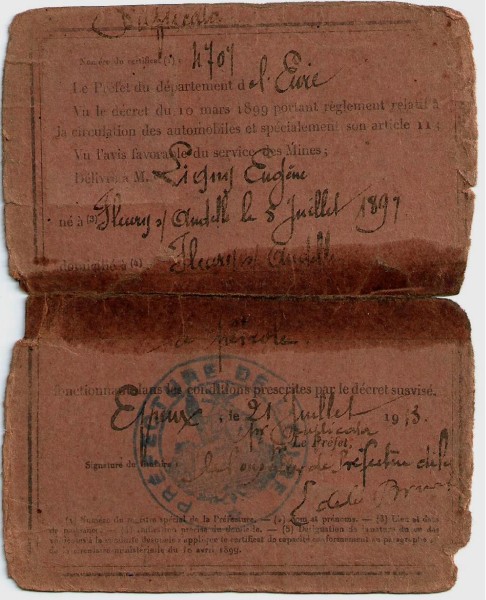 Duplicata
Numéro du certificat (1) : 4707
Le Préfet du département de l'Eure
Vu le décret du 10 mars 1899 portant règlement relatif à
la circulation des automobiles et spécialement son article 11 ;
Vu l'avis favorable du service des Mines ;
Délivre à M. Eugène
né à (3) Fleury s/ Andelle le 8 Juillet 1897
domicilié à (4) Fleury s/ Andelle
à pétrole
fonctionnant dans les conditions prescrites par le décret susvisé.
Evreux, le 21 Juillet 1913.
pr Duplicata
Le Préfet,
PRÉFECTURE DE L'EURE
Signature du titulaire
de Préfecture
(1) Numéro du registre spécial de la Préfecture. — (2) Nom et prénoms. — (3) Lieu et date
de naissance. — (4) Indication précise du domicile. — (5) Désignation de
applique le certificat de capacité conformément au paragraphe
de la circulaire ministérielle du 10 avril 1899.